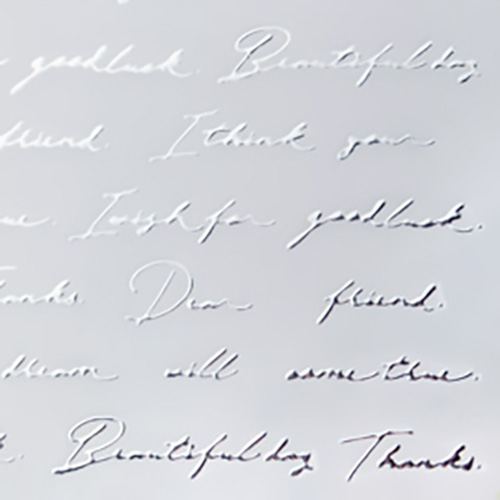 goodluck. Beautiful day
friend. I think your
ue. I wish for goodluck.
Thanks. Dear friend.
dream will come true.
k. Beautiful day Thanks.